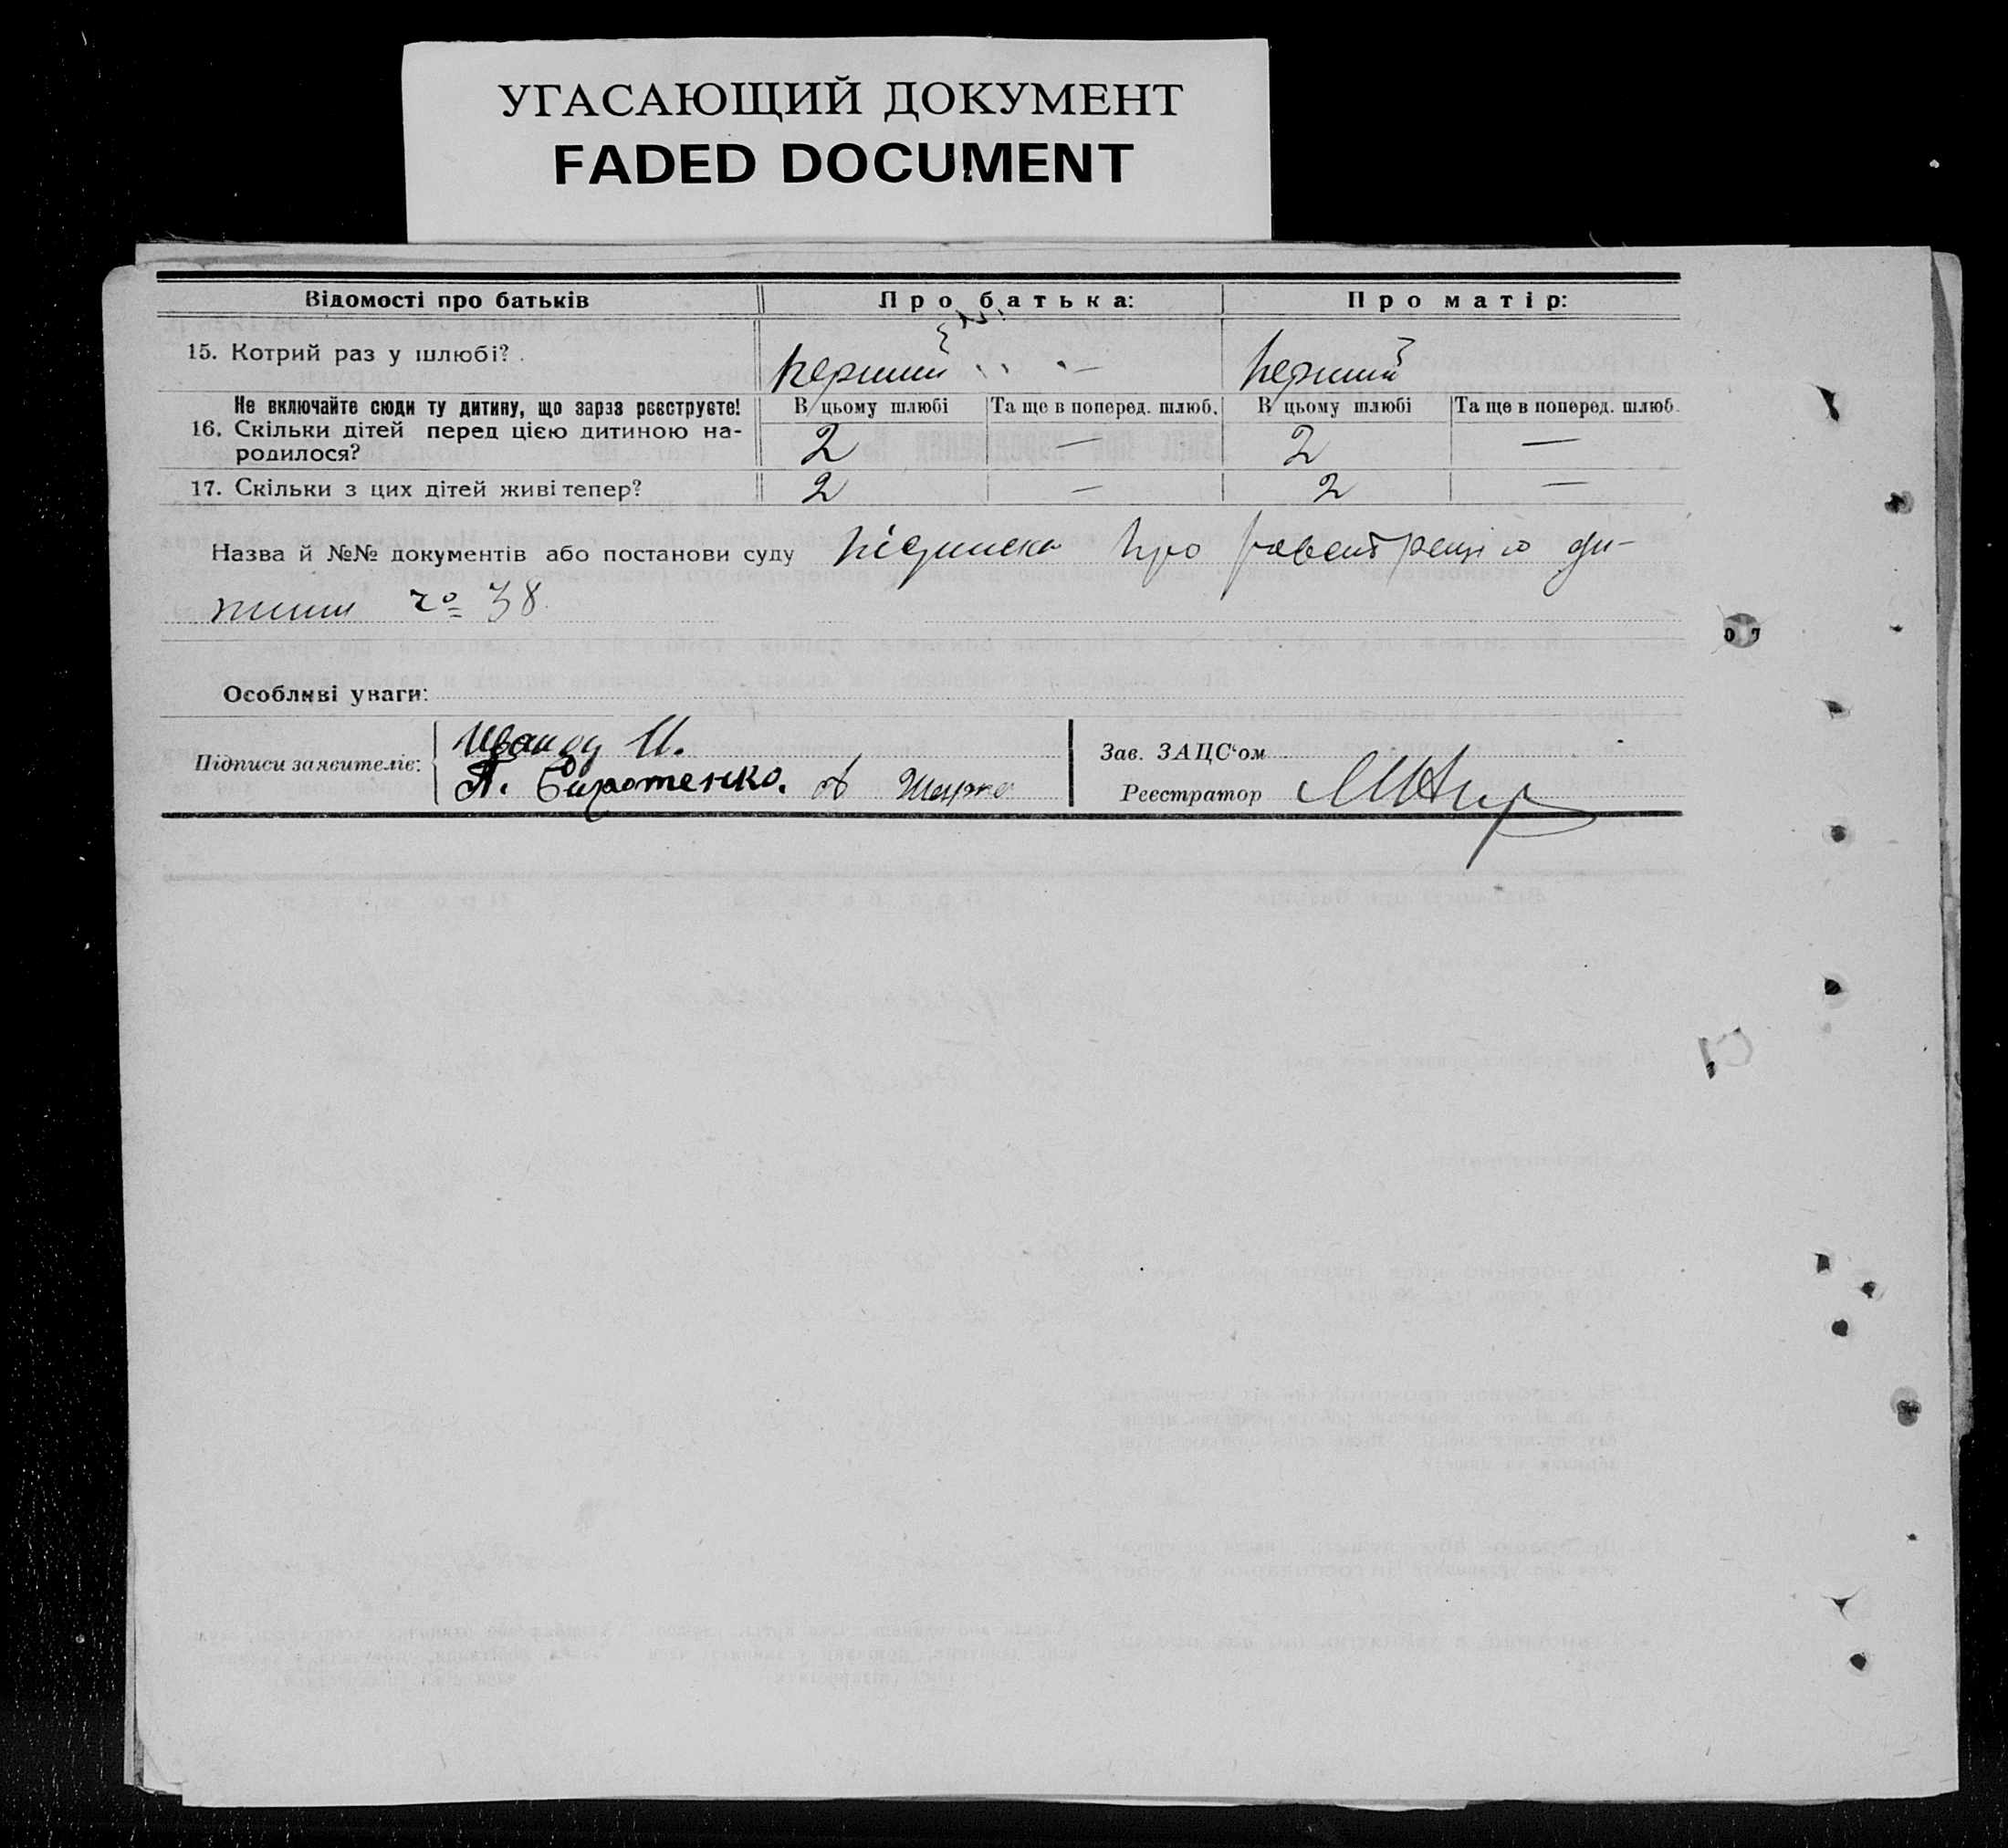 УГАСАЮЩИЙ ДОКУМЕНТ
FADED DOCUMENT
Відомості про батьків Про батька: Про матір:
15. Котрий раз у шлюбі? перший — перший
Не включайте сюди ту дитину, що зараз реєструєте! В цьому шлюбі Та ще в поперед. шлюб. В цьому шлюбі Та ще в поперед. шлюб.
16. Скільки дітей перед цією дитиною на-
родилося? 2 — 2 —
17. Скільки з цих дітей живі тепер? 2 — 2 —
Назва й №№ документів або постанови суду підписка про реєстрацію ди-
тини № 38
Особливі уваги:
Підписи заявителів: И.
П. Сиротенко. Зав. ЗАЦС'ом
Реєстратор